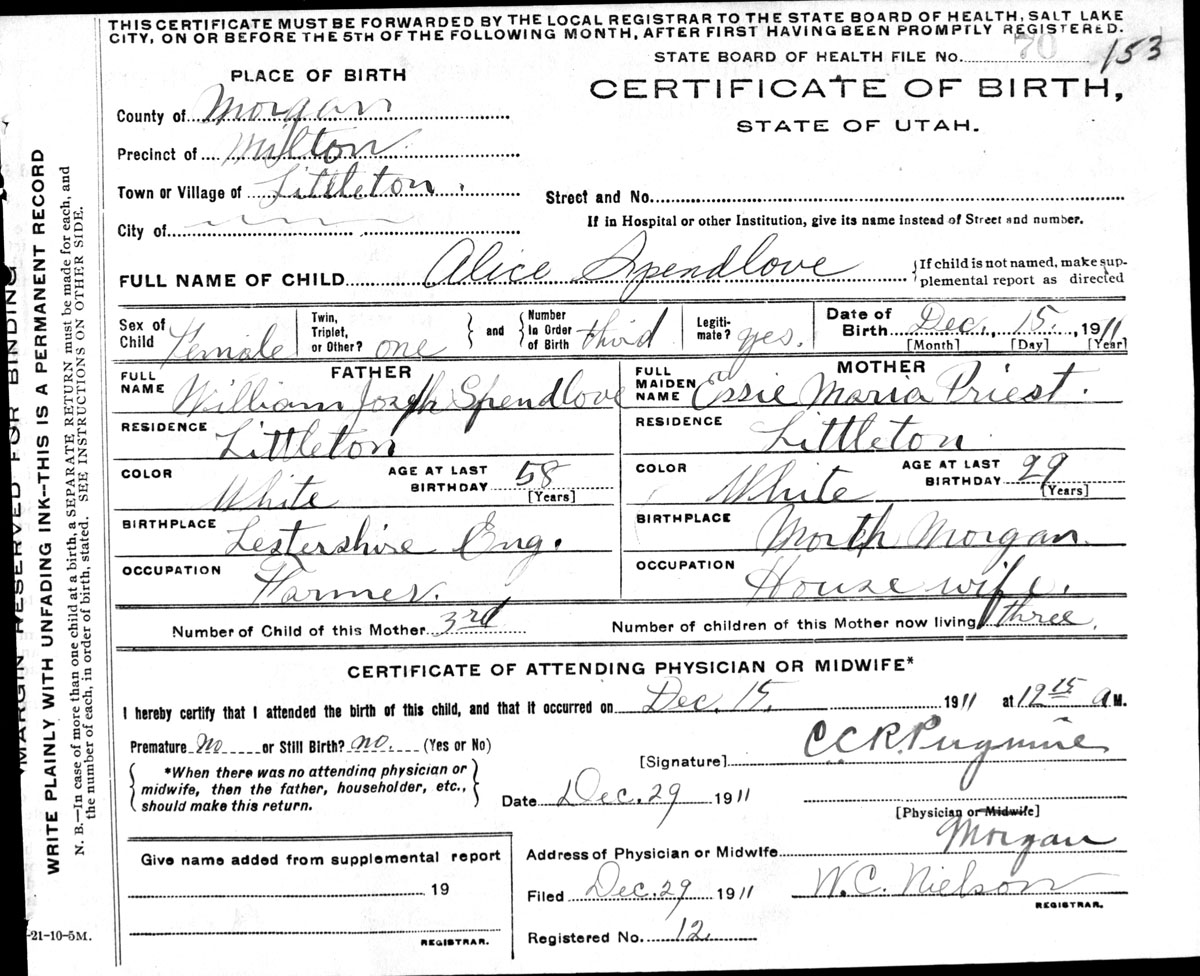 THIS CERTIFICATE MUST BE FORWARDED BY THE LOCAL REGISTRAR TO THE STATE BOARD OF HEALTH, SALT LAKE
CITY, ON OR BEFORE THE 5TH OF THE FOLLOWING MONTH, AFTER FIRST HAVING BEEN PROMPTLY REGISTERED.
STATE BOARD OF HEALTH FILE No. 70 153
PLACE OF BIRTH
CERTIFICATE OF BIRTH,
STATE OF UTAH.
County of Morgan
Precinct of Milton
Town or Village of Littleton.
Street and No.
City of
If in Hospital or other Institution, give its name instead of Street and number.
FULL NAME OF CHILD Alice Spendlove
If child is not named, make sup-
plemental report as directed
Sex of Child Female
Twin, Triplet, or Other? one
and
Number In Order of Birth third
Legiti-mate? yes.
Date of Birth Dec. 15, 1911
[Month] [Day] [Year]
FATHER
FULL NAME William Joseph Spendlove
RESIDENCE Littleton
COLOR White
AGE AT LAST BIRTHDAY 58 [Years]
BIRTHPLACE Lestershire Eng.
OCCUPATION Farmer.
MOTHER
FULL MAIDEN NAME Essie Maria Priest.
RESIDENCE Littleton
COLOR White
AGE AT LAST BIRTHDAY 29 [Years]
BIRTHPLACE North Morgan.
OCCUPATION House wife.
Number of Child of this Mother 3rd
Number of children of this Mother now living three.
CERTIFICATE OF ATTENDING PHYSICIAN OR MIDWIFE*
I hereby certify that I attended the birth of this child, and that it occurred on Dec. 15. 1911 at 12 15 a M.
Premature no or Still Birth? no. (Yes or No)
[Signature] C.C.R. Pugmire
*When there was no attending physician or
midwife, then the father, householder, etc.,
should make this return.
Date Dec. 29 1911
[Physician or Midwife]
Address of Physician or Midwife Morgan
Give name added from supplemental report
19
REGISTRAR.
Filed Dec. 29 1911 W. C. Nielson
REGISTRAR.
Registered No. 12.
MARGIN RESERVED FOR BINDING
WRITE PLAINLY WITH UNFADING INK—THIS IS A PERMANENT RECORD
N. B.—In case of more than one child at a birth, a SEPARATE RETURN must be made for each, and
the number of each, in order of birth, stated. SEE INSTRUCTIONS ON OTHER SIDE.
-21-10-5M.